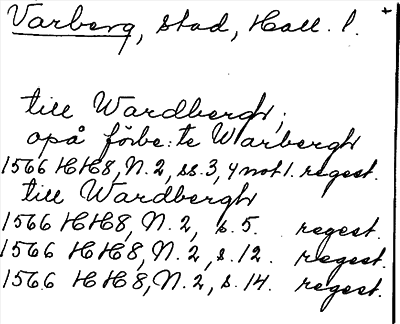 Varberg, stad, Hall. l. +
till Wardbergh,
opå förbe:te Warbergh
1566 HH8, N. 2, ss. 3, 4 not 1. regest.
till Wardbergh
1566 HH8, N. 2, s. 5. regest.
1566 HH8, N. 2, s. 12. regest.
1566 HH8, N. 2, s. 14. regest.